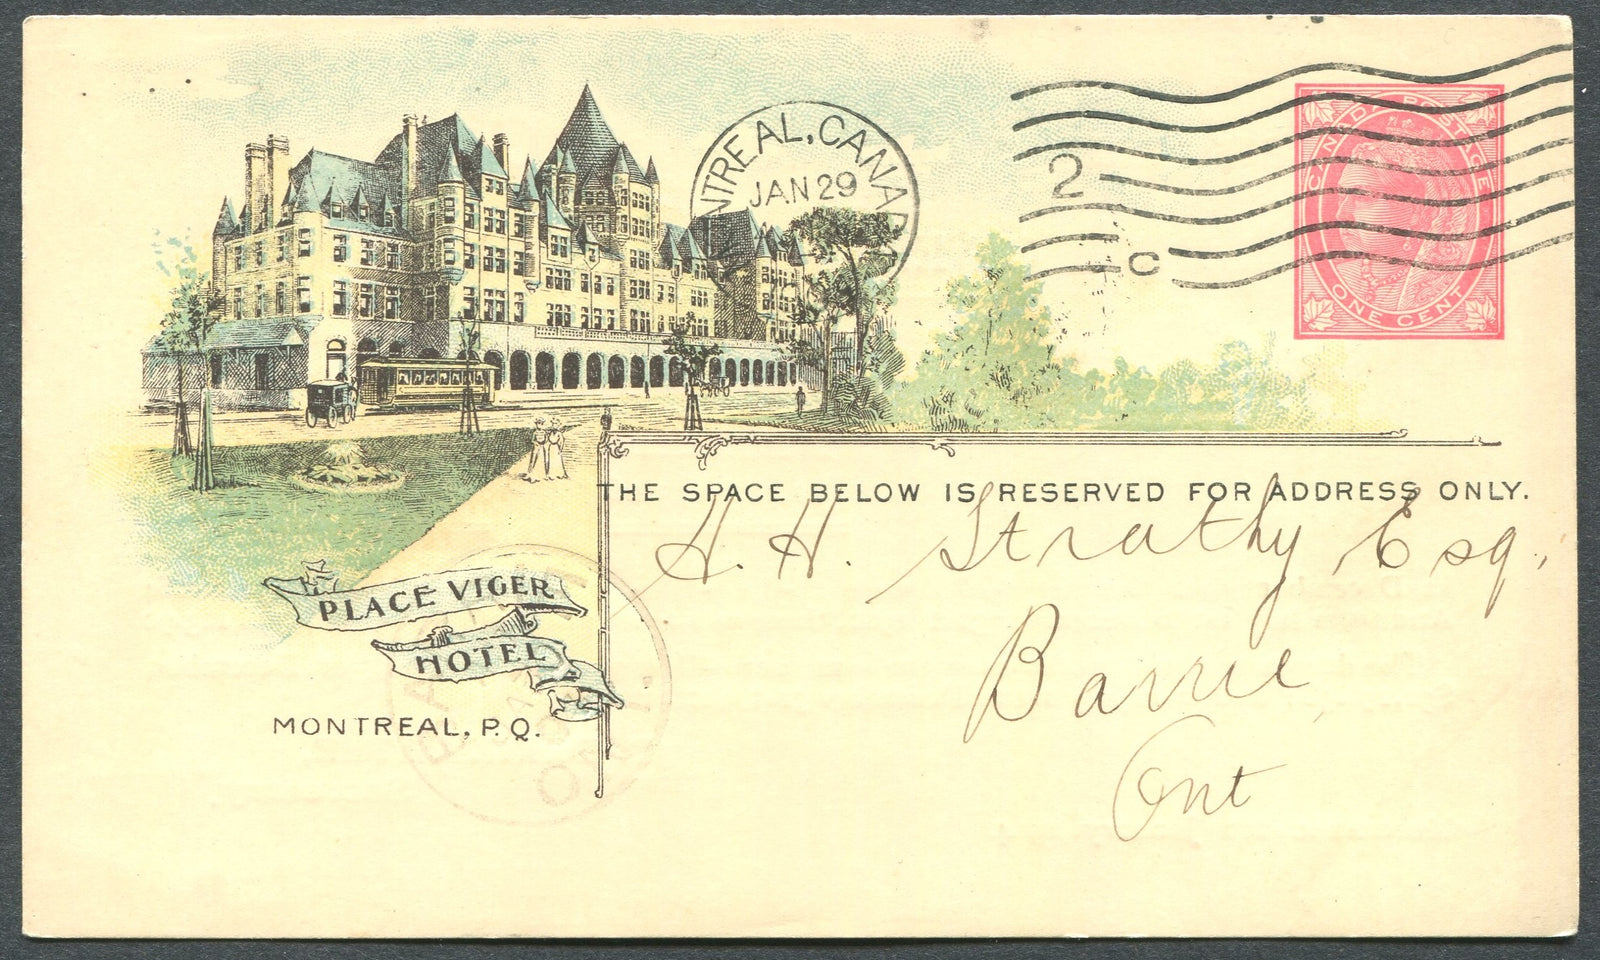 MONTREAL, CANADA
JAN 29
2
C
CANADA POSTAGE
ONE CENT
THE SPACE BELOW IS RESERVED FOR ADDRESS ONLY.
H. H. Strathy Esq.,
Barrie
Ont
PLACE VIGER
HOTEL
MONTREAL, P.Q.
BARRIE
ONT.